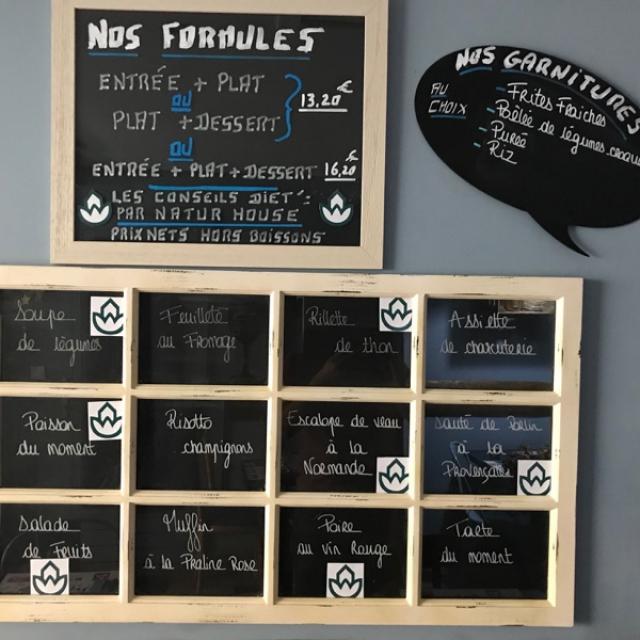 NOS FORMULES
ENTRÉE + PLAT
OU
PLAT + DESSERT
13,20€
OU
ENTRÉE + PLAT + DESSERT 16,20€
LES CONSEILS DIET':
PAR NATUR HOUSE
PRIX NETS HORS BOISSONS
NOS GARNITURES
AU CHOIX
- Frites Fraiches
- Poêlée de légumes
- Purée
- Riz
Soupe
de légumes
Feuilleté
au Fromage
Rillette
de thon
Assiette
de charcuterie
Poisson
du moment
Risotto
champignons
Escalope de veau
à la
Normande
Sauté de
à la
Provençale
Salade
de Fruits
Muffin
à la Praline Rose
Poire
au vin Rouge
Tarte
du moment